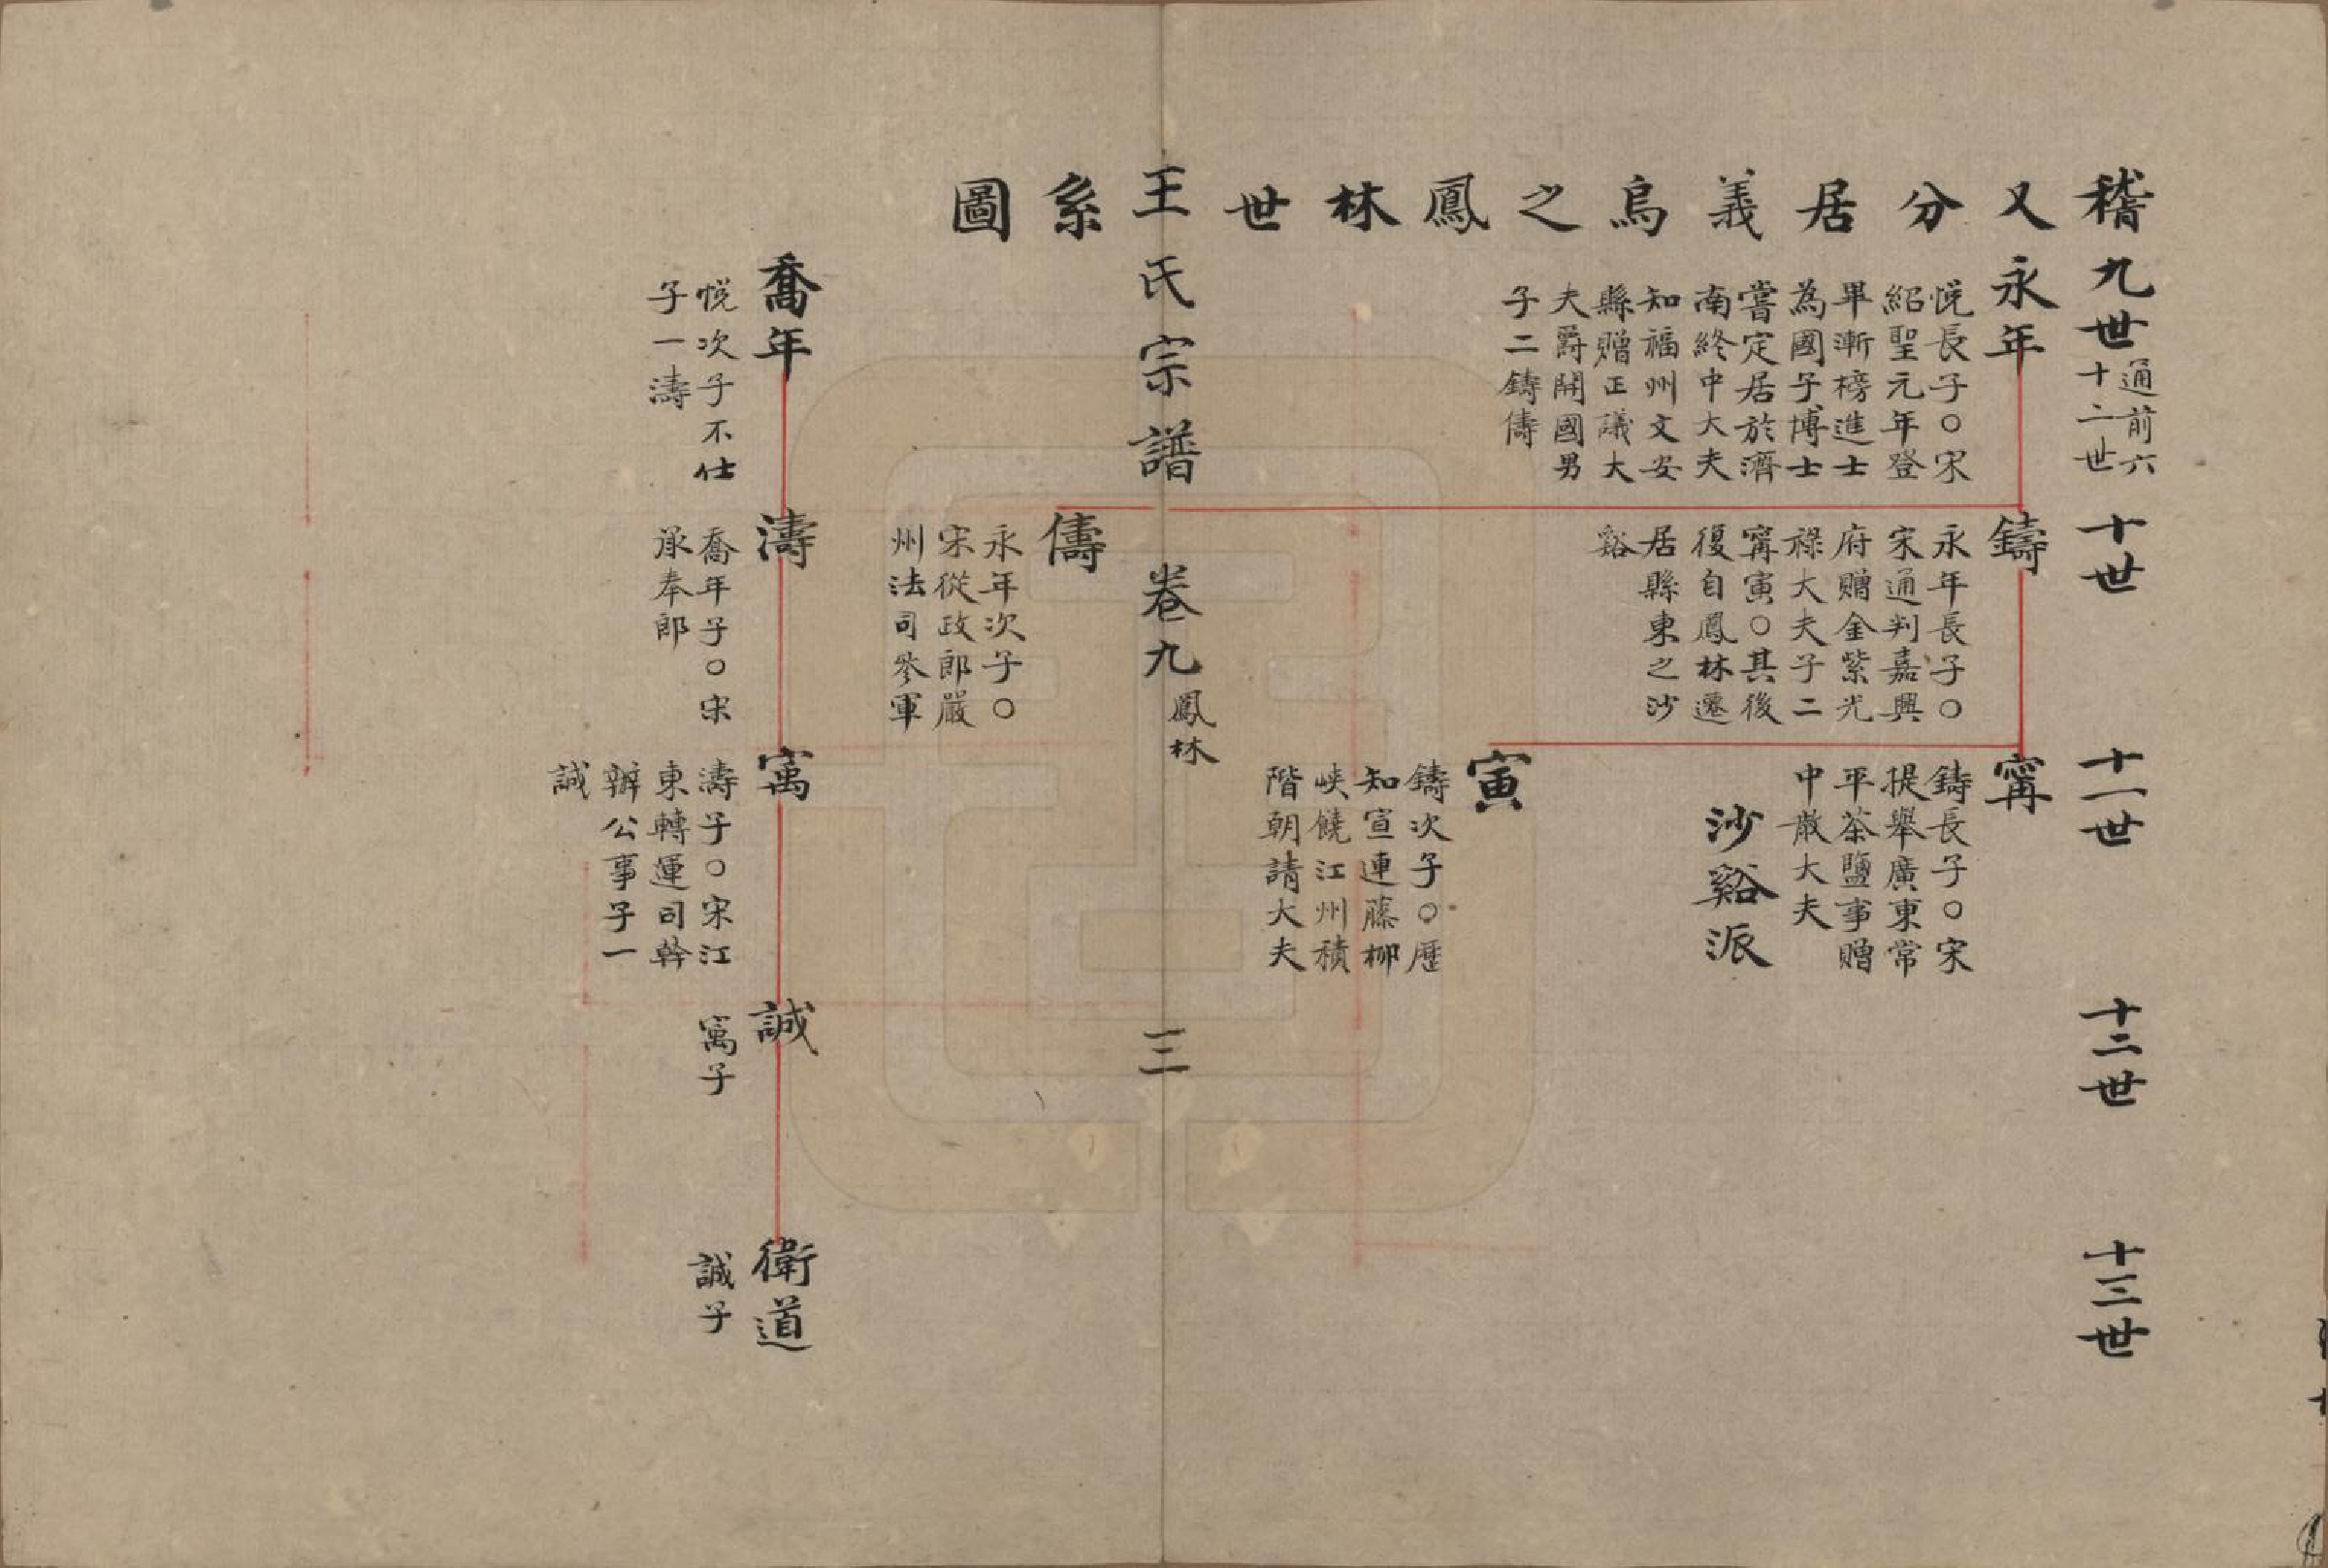 稽又分居義烏之鳳林世系圖
九世
通前六
十二世
十世
十一世
十二世
十三世
永年
悅長子○宋
紹聖元年登
畢漸榜進士
為國子博士
嘗定居於濟
南終中大夫
知福州文安
縣贈正議大
夫爵開國男
子二鑄儔
鑄
永年長子○
宋通判嘉興
府贈金紫光
祿大夫子二
寗寅○其後
復自鳳林遷
居縣東之沙
谿
寗
鑄長子○宋
提舉廣東常
平茶鹽事贈
中散大夫
沙谿派
寅
鑄次子○歷
知宣連藤柳
峽饒江州積
階朝請大夫
王氏宗譜
卷九
鳳林
三
儔
永年次子○
宋從政郎嚴
州法司參軍
喬年
悅次子不仕
子一濤
濤
喬年子○宋
承奉郎
寯
濤子○宋江
東轉運司幹
辦公事子一
誠
誠
寯子
衛道
誠子